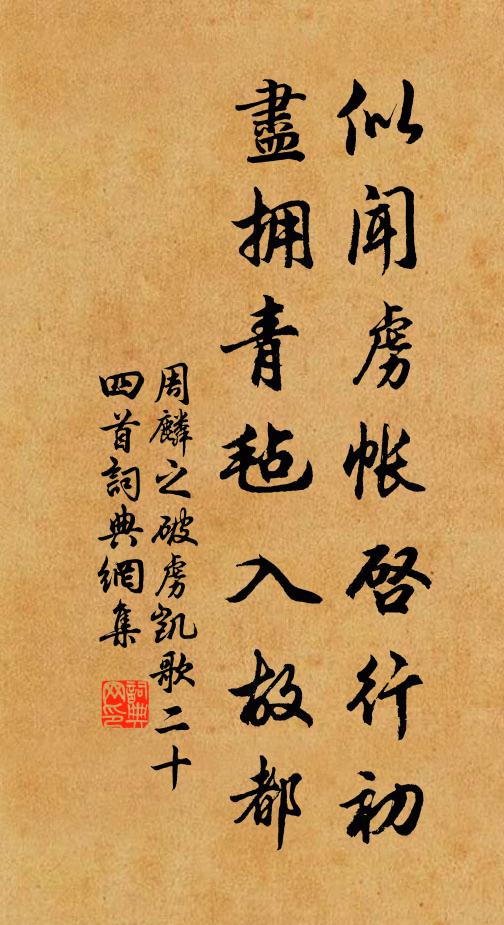 似闻虏帐启行初
盡拥青毡入故都
周麟之破虏凯歌二十
四首詞典網集
詞典网印